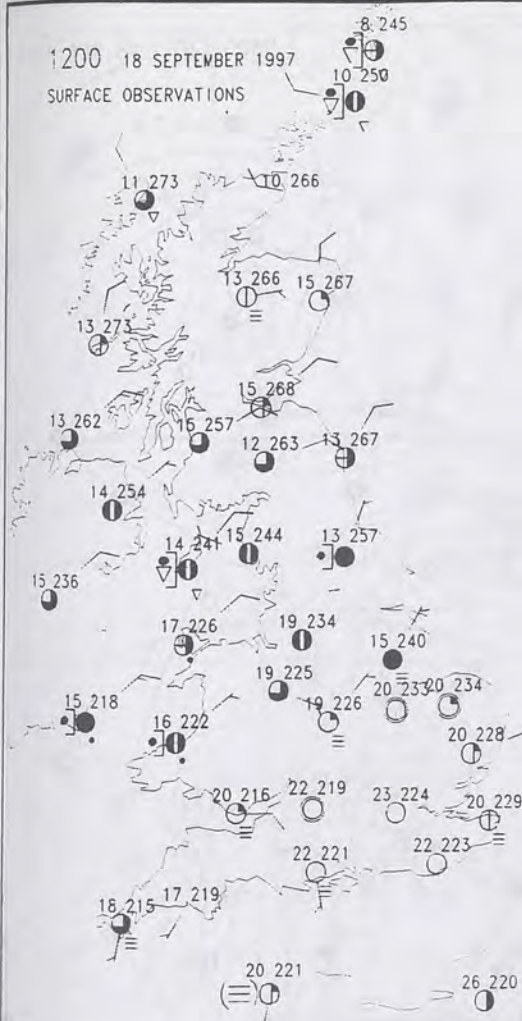 8 245
1200 18 SEPTEMBER 1997
10 250
SURFACE OBSERVATIONS
11 273
10 266
13 266
15 267
13 273
15 268
13 262
15 257
12 263
13 267
14 254
14 241
15 244
13 257
15 236
17 226
19 234
15 240
19 225
20 233
20 234
15 218
16 222
19 226
20 228
20 216
22 219
23 224
20 229
22 221
22 223
18 215
17 219
20 221
26 220